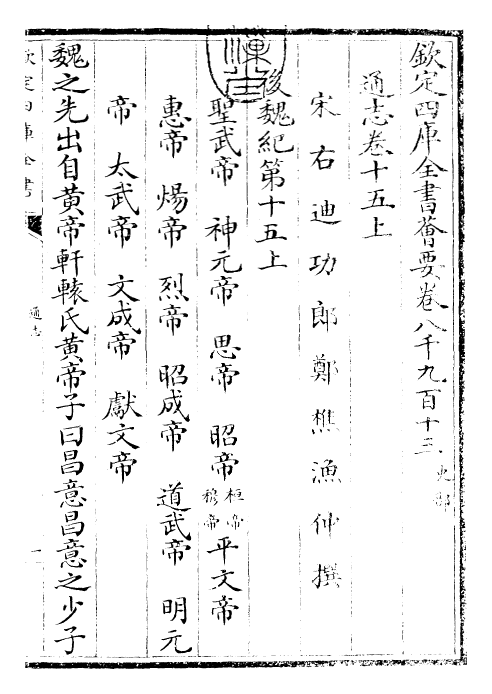 欽定四庫全書薈要卷八千九百十三 史部
通志卷十五上
宋右迪功郎鄭樵漁仲撰
後魏紀第十五上
聖武帝 神元帝 思帝 昭帝 桓帝 穆帝 平文帝
惠帝 煬帝 烈帝 昭成帝 道武帝 明元
帝 太武帝 文成帝 獻文帝
魏之先出自黄帝軒轅氏黄帝子曰昌意昌意之少子
欽定四庫全書
通志
一